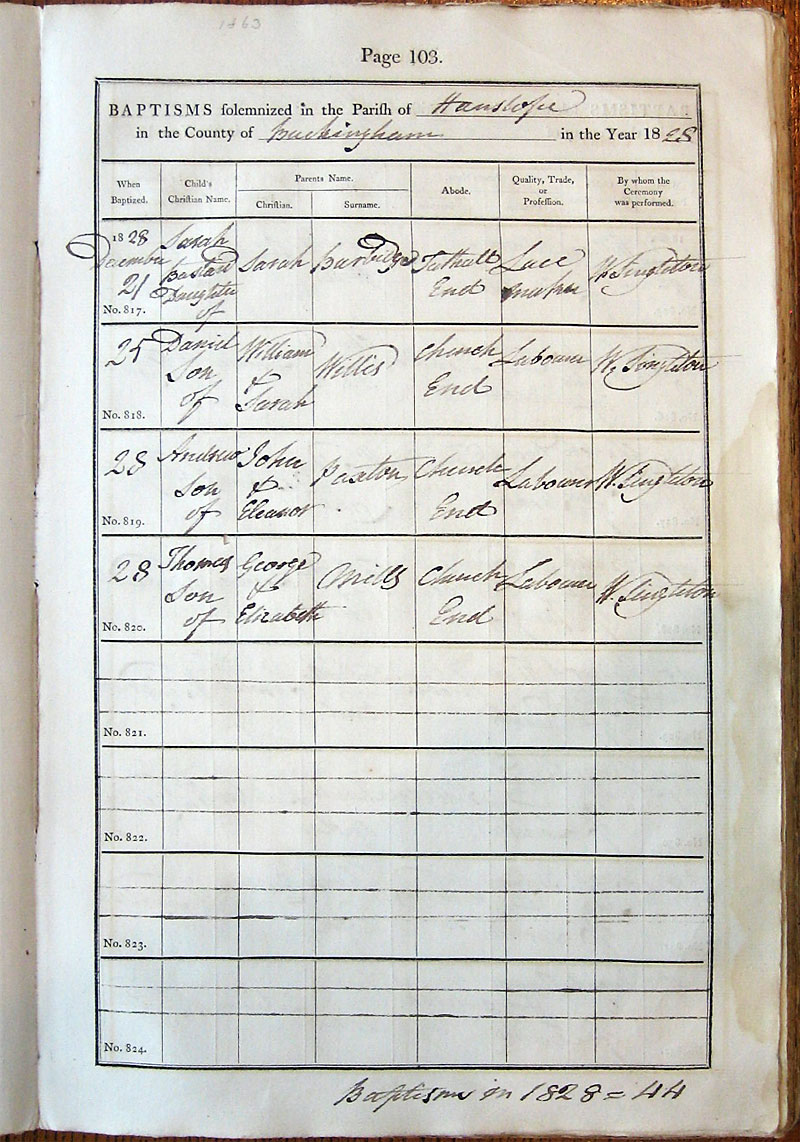 1863
Page 103.
BAPTISMS solemnized in the Parish of Hanslope
in the County of Buckingham in the Year 1828
When Baptized.
Child's Christian Name.
Parents Name.
Christian.
Surname.
Abode.
Quality, Trade, or Profession.
By whom the Ceremony was performed.
1828 December 21 No. 817.
Sarah Bastard Daughter of
Sarah
Burbidge
Tathall End
Lace maker
W. Singleton
25 No. 818.
Daniel Son of
William & Sarah
Willis
Church End
Labourer
W. Singleton
28 No. 819.
Andrew Son of
John & Eleanor
Paxton
Church End
Labourer
W. Singleton
28 No. 820.
Thomas Son of
George & Elizabeth
Mills
Church End
Labourer
W. Singleton
No. 821.
No. 822.
No. 823.
No. 824.
Baptisms in 1828 = 44